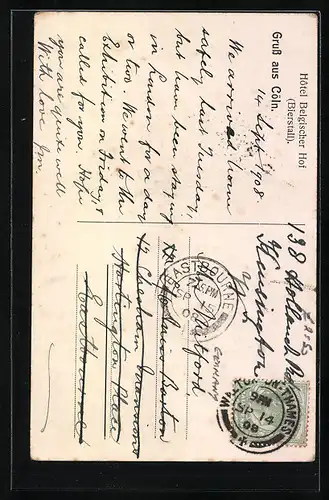 Hôtel Belgischer Hof
(Bierstall).
Gruß aus Cöln.
14 Sept 1908
We arrived home
safely last Tuesday,
but have been staying
in London for a day
or two. We went to the
Exhibition on Friday &
called for you. Hope
you are quite well
With love Jm.
138 Holland Rd
Kensington
W.
Hartington Place
Eastbourne
GERMANY
EASTBOURNE
SP 15
WALTON-ON-THAMES
9 AM
SP 14
08